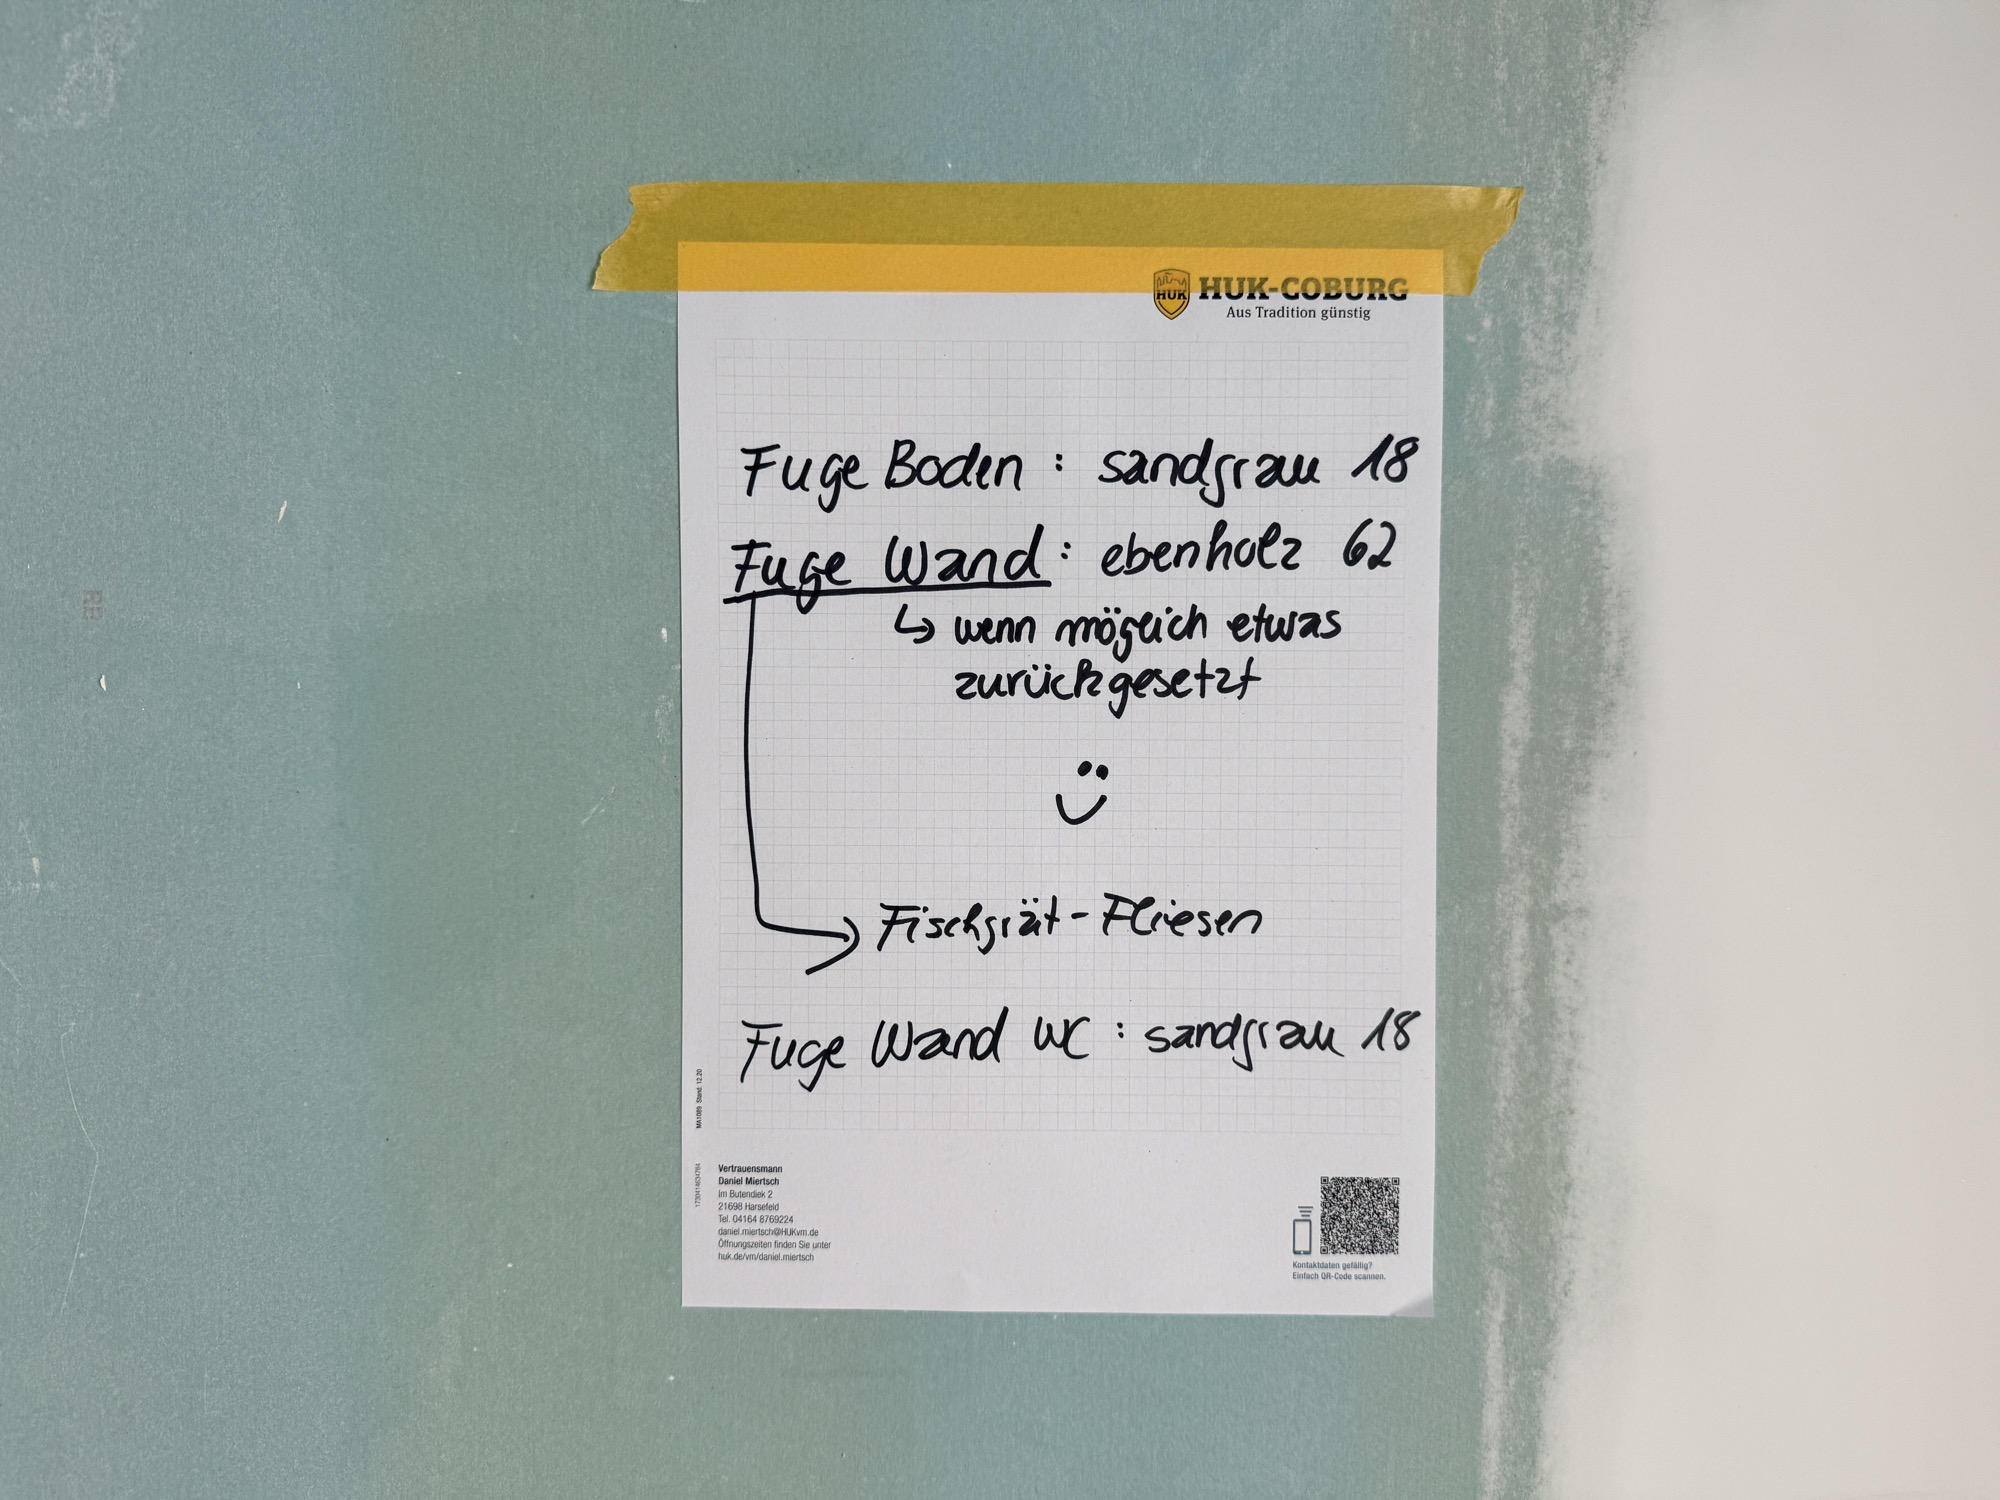 HUK
HUK-COBURG
Aus Tradition günstig
Fuge Boden : sandgrau 18
Fuge Wand : ebenholz 62
↳ wenn möglich etwas
zurückgesetzt
Fischgrät-Fliesen
Fuge Wand WC : sandgrau 18
MA1089 Stand: 12.20
Vertrauensmann
Daniel Miertsch
Im Butendiek 2
21698 Harsefeld
Tel. 04164 8769224
daniel.miertsch@HUKvm.de
Öffnungszeiten finden Sie unter
huk.de/vm/daniel.miertsch
Kontaktdaten gefällig?
Einfach QR-Code scannen.